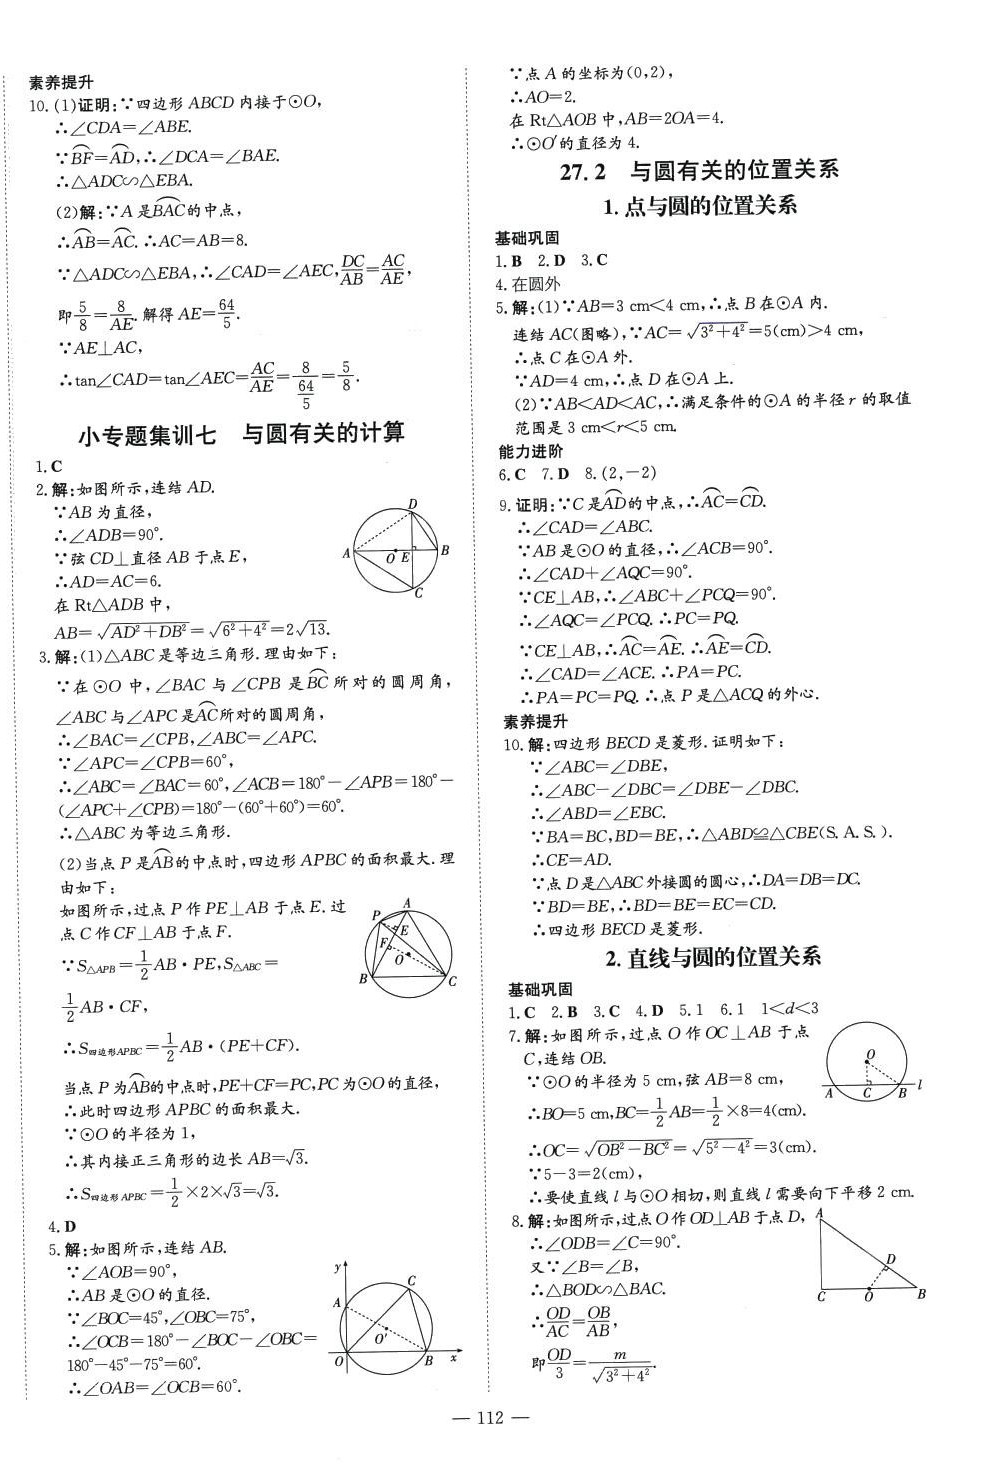 素养提升
10.(1)证明:∵四边形 ABCD 内接于⊙O,
∴∠CDA=∠ABE.
∵BF⌒=AD⌒,∴∠DCA=∠BAE.
∴△ADC∽△EBA.
(2)解:∵A 是BAC⌒的中点,
∴AB⌒=AC⌒.∴AC=AB=8.
∵△ADC∽△EBA,∴∠CAD=∠AEC,DC/AB=AC/AE,
即5/8=8/AE.解得 AE=64/5.
∵AE⊥AC,
∴tan∠CAD=tan∠AEC=AC/AE=8/(64/5)=5/8.
小专题集训七 与圆有关的计算
1.C
2.解:如图所示,连结 AD.
∵AB 为直径,
∴∠ADB=90°.
∵弦 CD⊥直径 AB 于点 E,
∴AD=AC=6.
在 Rt△ADB 中,
AB=√(AD²+DB²)=√(6²+4²)=2√13.
A O E B D C
3.解:(1)△ABC 是等边三角形.理由如下:
∵在⊙O 中,∠BAC 与∠CPB 是BC⌒所对的圆周角,
∠ABC 与∠APC 是AC⌒所对的圆周角,
∴∠BAC=∠CPB,∠ABC=∠APC.
∵∠APC=∠CPB=60°,
∴∠ABC=∠BAC=60°,∠ACB=180°-∠APB=180°-
(∠APC+∠CPB)=180°-(60°+60°)=60°.
∴△ABC 为等边三角形.
(2)当点 P 是AB⌒的中点时,四边形 APBC 的面积最大.理
由如下:
如图所示,过点 P 作 PE⊥AB 于点 E.过
点 C 作 CF⊥AB 于点 F.
∵S△APB=1/2 AB·PE,S△ABC=
1/2 AB·CF,
∴S四边形APBC=1/2 AB·(PE+CF).
P A E F O B C
当点 P 为AB⌒的中点时,PE+CF=PC,PC 为⊙O 的直径,
∴此时四边形 APBC 的面积最大.
∵⊙O 的半径为 1,
∴其内接正三角形的边长 AB=√3.
∴S四边形APBC=1/2×2×√3=√3.
4.D
5.解:如图所示,连结 AB.
∵∠AOB=90°,
∴AB 是⊙O 的直径.
∵∠BOC=45°,∠OBC=75°,
∴∠OCB=180°-∠BOC-∠OBC=
180°-45°-75°=60°.
∴∠OAB=∠OCB=60°.
y A C O′ O B x
∵点 A 的坐标为(0,2),
∴AO=2.
在 Rt△AOB 中,AB=2OA=4.
∴⊙O′的直径为 4.
27.2 与圆有关的位置关系
1.点与圆的位置关系
基础巩固
1.B 2.D 3.C
4.在圆外
5.解:(1)∵AB=3 cm<4 cm,∴点 B 在⊙A 内.
连结 AC(图略),∵AC=√(3²+4²)=5(cm)>4 cm,
∴点 C 在⊙A 外.
∵AD=4 cm,∴点 D 在⊙A 上.
(2)∵AB<AD<AC,∴满足条件的⊙A 的半径 r 的取值
范围是 3 cm<r<5 cm.
能力进阶
6.C 7.D 8.(2,-2)
9.证明:∵C 是AD⌒的中点,∴AC⌒=CD⌒.
∴∠CAD=∠ABC.
∵AB 是⊙O 的直径,∴∠ACB=90°.
∴∠CAD+∠AQC=90°.
∵CE⊥AB,∴∠ABC+∠PCQ=90°.
∴∠AQC=∠PCQ.∴PC=PQ.
∵CE⊥AB,∴AC⌒=AE⌒.∴AE⌒=CD⌒.
∴∠CAD=∠ACE.∴PA=PC.
∴PA=PC=PQ.∴点 P 是△ACQ 的外心.
素养提升
10.解:四边形 BECD 是菱形.证明如下:
∵∠ABC=∠DBE,
∴∠ABC-∠DBC=∠DBE-∠DBC.
∴∠ABD=∠EBC.
∵BA=BC,BD=BE,∴△ABD≌△CBE(S.A.S.).
∴CE=AD.
∵点 D 是△ABC 外接圆的圆心,∴DA=DB=DC.
∵BD=BE,∴BD=BE=EC=CD.
∴四边形 BECD 是菱形.
2.直线与圆的位置关系
基础巩固
1.C 2.B 3.C 4.D 5.1 6.1 1<d<3
7.解:如图所示,过点 O 作 OC⊥AB 于点
C,连结 OB.
∵⊙O 的半径为 5 cm,弦 AB=8 cm,
∴BO=5 cm,BC=1/2 AB=1/2×8=4(cm).
∴OC=√(OB²-BC²)=√(5²-4²)=3(cm).
∵5-3=2(cm),
∴要使直线 l 与⊙O 相切,则直线 l 需要向下平移 2 cm.
O A C B l
8.解:如图所示,过点 O 作 OD⊥AB 于点 D,
∴∠ODB=∠C=90°.
又∵∠B=∠B,
∴△BOD∽△BAC.
∴OD/AC=OB/AB,
即OD/3=m/√(3²+4²).
A D C O B
— 112 —